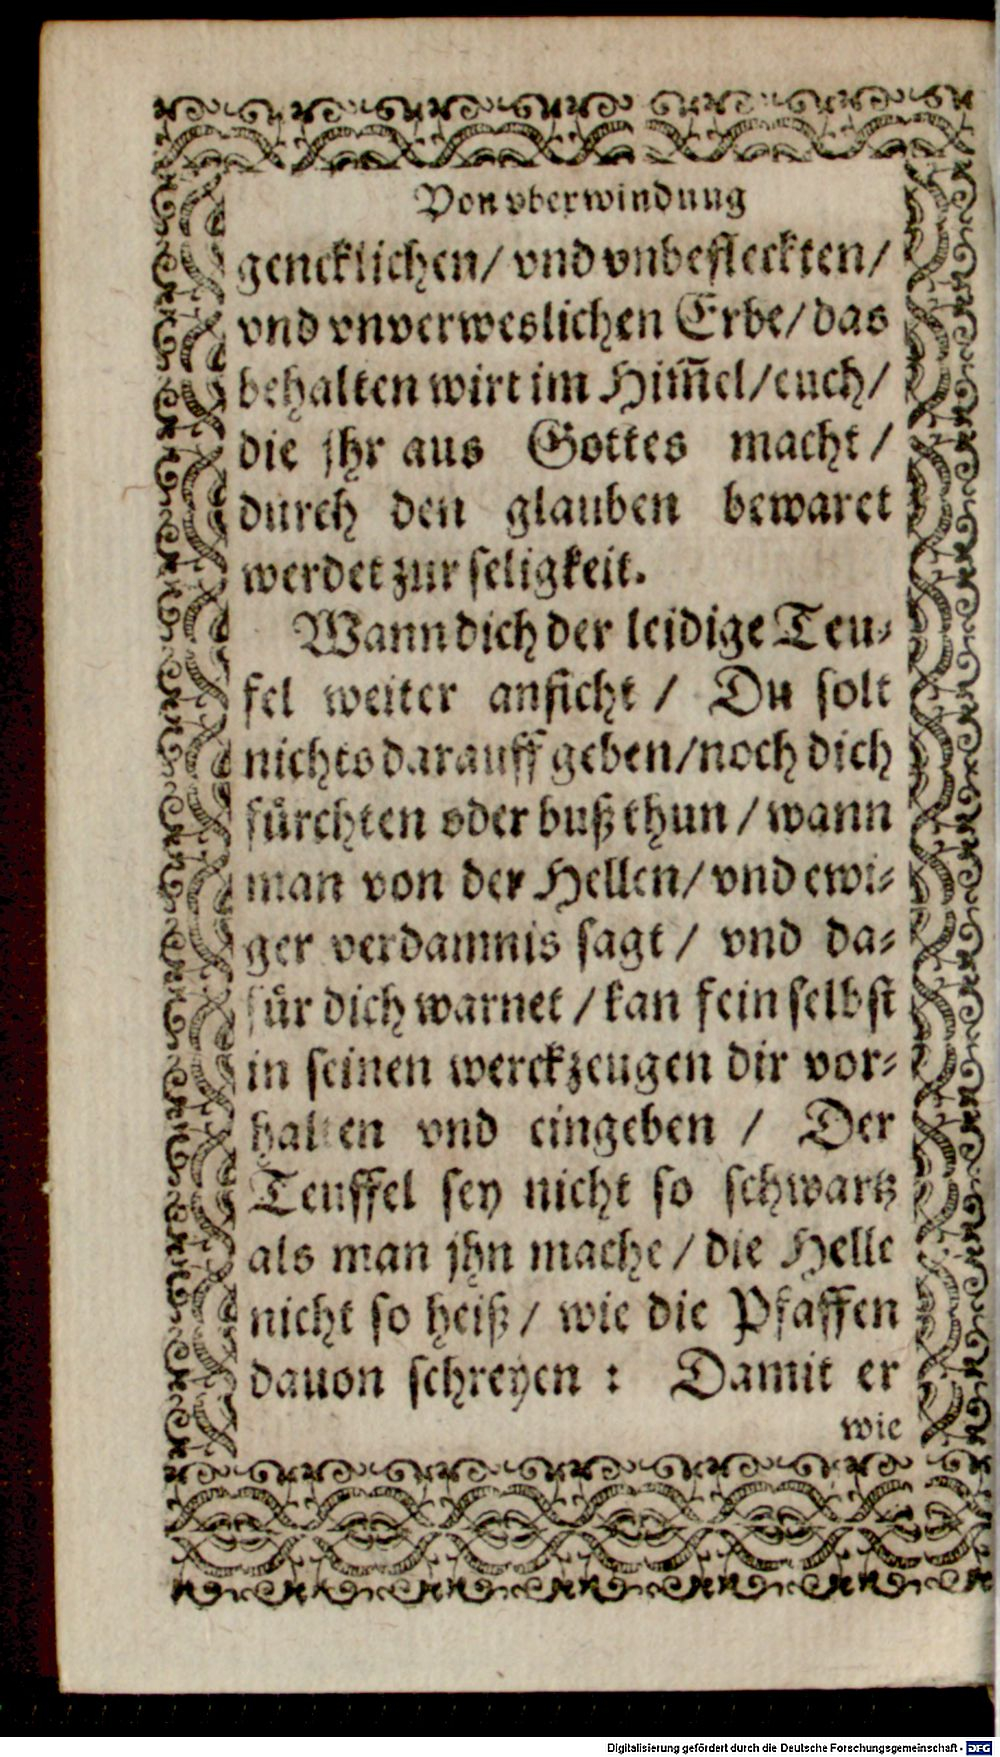 Von vberwindung
gencklichen/ vnd vnbefleckten/
vnd vnverweslichen Erbe/ das
behalten wirt im Him̃el/euch/
die jhr aus Gottes macht/
durch den glauben bewaret
werdet zur seligkeit.
Wann dich der leidige Teu⸗
fel weiter anficht / Du solt
nichts darauff geben/noch dich
fürchten oder buß thun / wann
man von der Hellen/ vnd ewi⸗
ger verdamnis sagt / vnd da⸗
für dich warnet / kan fein selbst
in seinen werckzeugen dir vor⸗
halten vnd eingeben / Der
Teuffel sey nicht so schwartz
als man jhn mache / die Helle
nicht so heiß / wie die Pfaffen
dauon schreyen : Damit er
wie
Digitalisierung gefördert durch die Deutsche Forschungsgemeinschaft - DFG